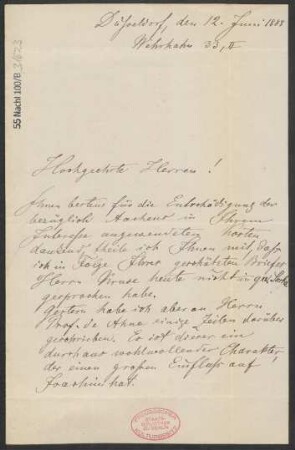 55 Nachl 100/B
Düsseldorf, den 12. Juni 1888
Wehrhahn 33, II
Hochgeehrte Herren!
Ihnen bestens für die Entschädigung der
bezüglich Aachens in Ihrem
Interesse angewendeten Kosten
dankend, theile ich Ihnen mit, dass
ich in Folge Ihres geschätzten Briefes
Herrn heute nicht in
gesprochen habe.
Gestern habe ich aber an Herrn
Prof. de Ahna einige Zeilen darüber
geschrieben. Es ist dieser ein
durchaus wohlwollender Charakter,
der einen großen Einfluss auf
Joachim hat.